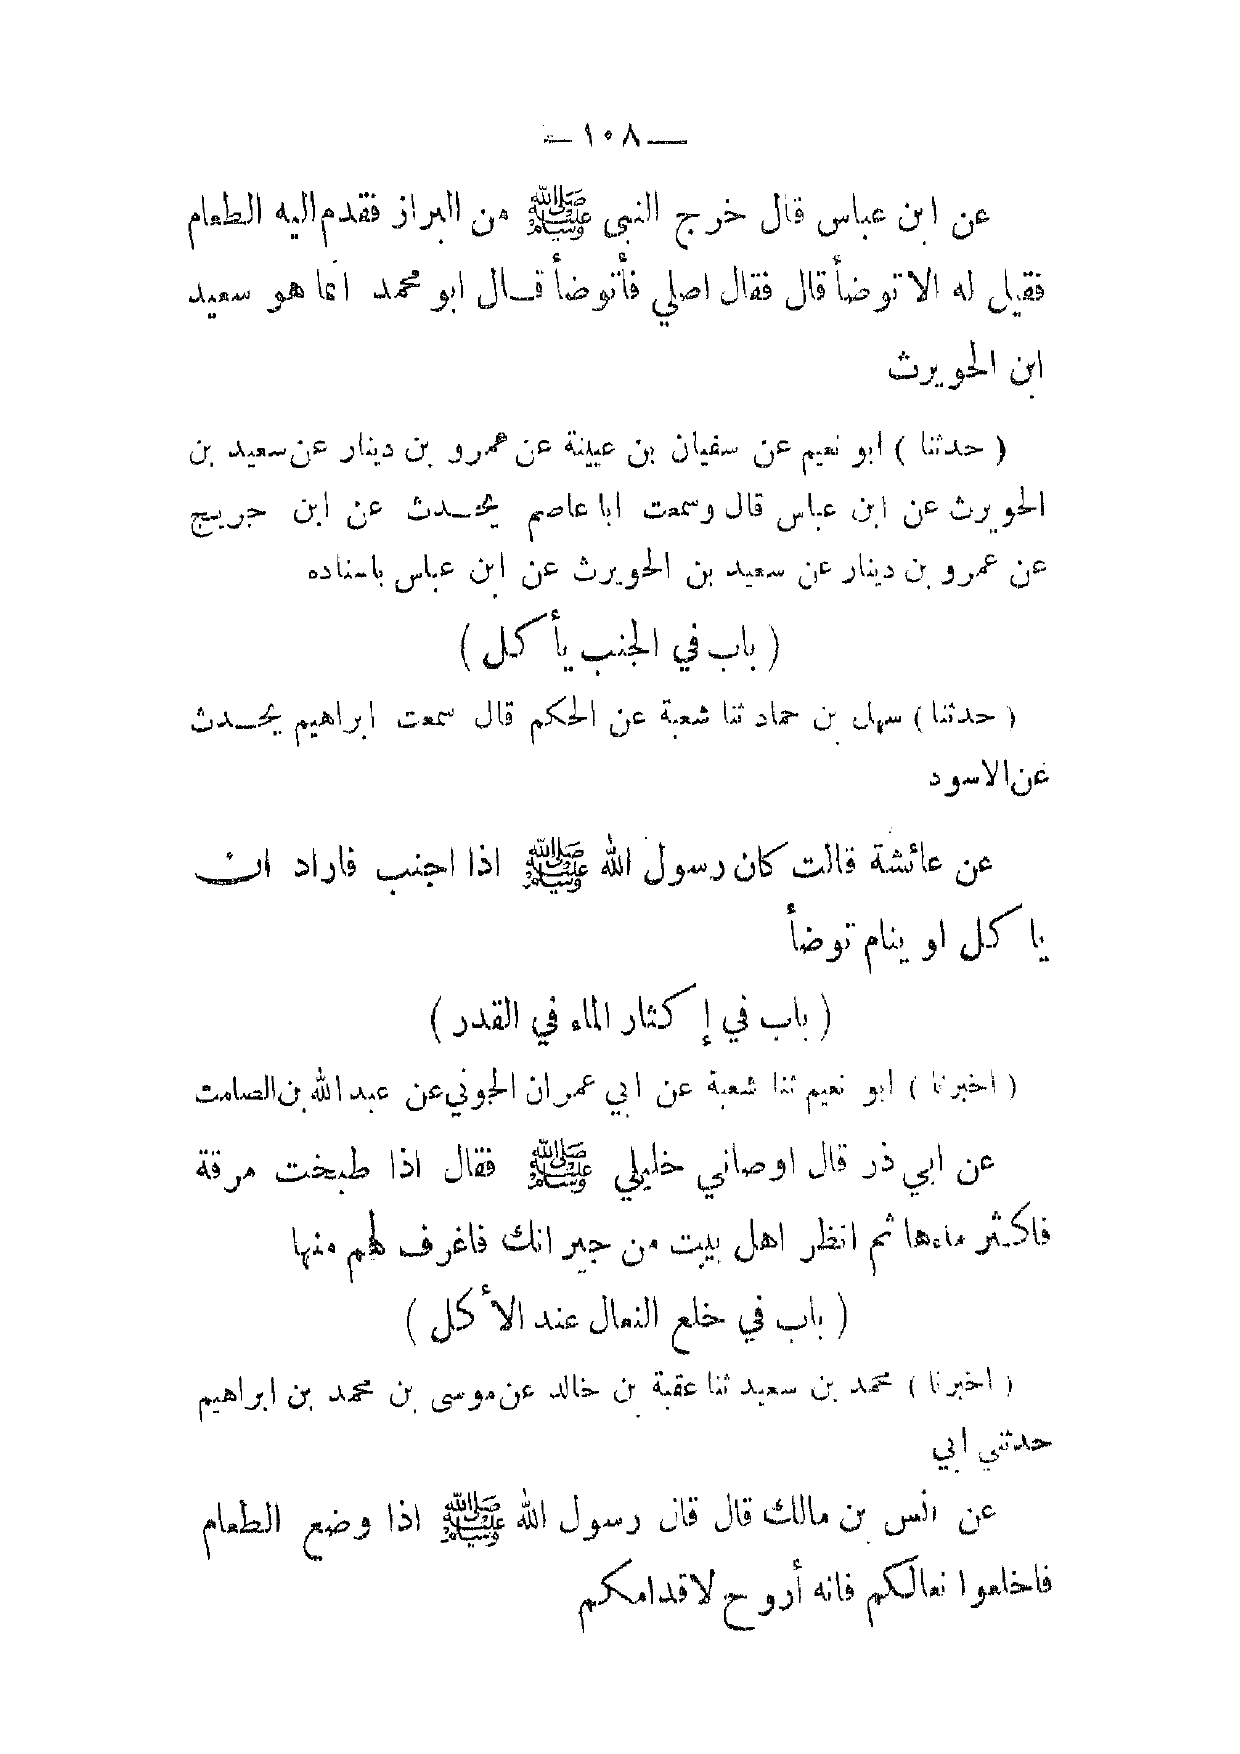 — ١٠٨ —
عن ابن عباس قال خرج النبى ﷺ من البراز فقدم اليه الطعام
فقيل له الا توضأ قال فقال اصلي فأتوضأ قال ابو محمد انما هو سعيد
ابن الحويرث
( حدثنا ) ابو نعيم عن سفيان بن عيينة عن عمرو بن دينار عن سعيد بن
الحويرث عن ابن عباس قال وسمعت ابا عاصم يحدث عن ابن جريج
عن عمرو بن دينار عن سعيد بن الحويرث عن ابن عباس باسناده
( باب في الجنب يأكل )
( حدثنا ) سهل بن حماد ثنا شعبة عن الحكم قال سمعت ابراهيم يحدث
عن الاسود
عن عائشة قالت كان رسول الله ﷺ اذا اجنب فاراد ان
ياكل او ينام توضأ
( باب في إكثار الماء في القدر )
( اخبرنا ) ابو نعيم ثنا شعبة عن ابي عمران الجوني عن عبد الله بن الصامت
عن ابي ذر قال اوصاني خليلي ﷺ فقال اذا طبخت مرقة
فاكثر ماءها ثم انظر اهل بيت من جيرانك فاغرف لهم منها
( باب في خلع النعال عند الأكل )
( اخبرنا ) محمد بن سعيد ثنا عقبة بن خالد عن موسى بن محمد بن ابراهيم
حدثني ابي
عن انس بن مالك قال قال رسول الله ﷺ اذا وضع الطعام
فاخلعوا نعالكم فانه أروح لاقدامكم